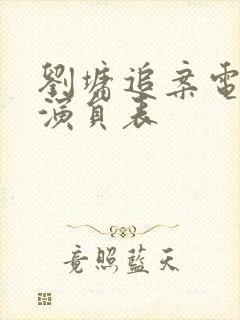 劉墉追案電
演員表
竟照藍天